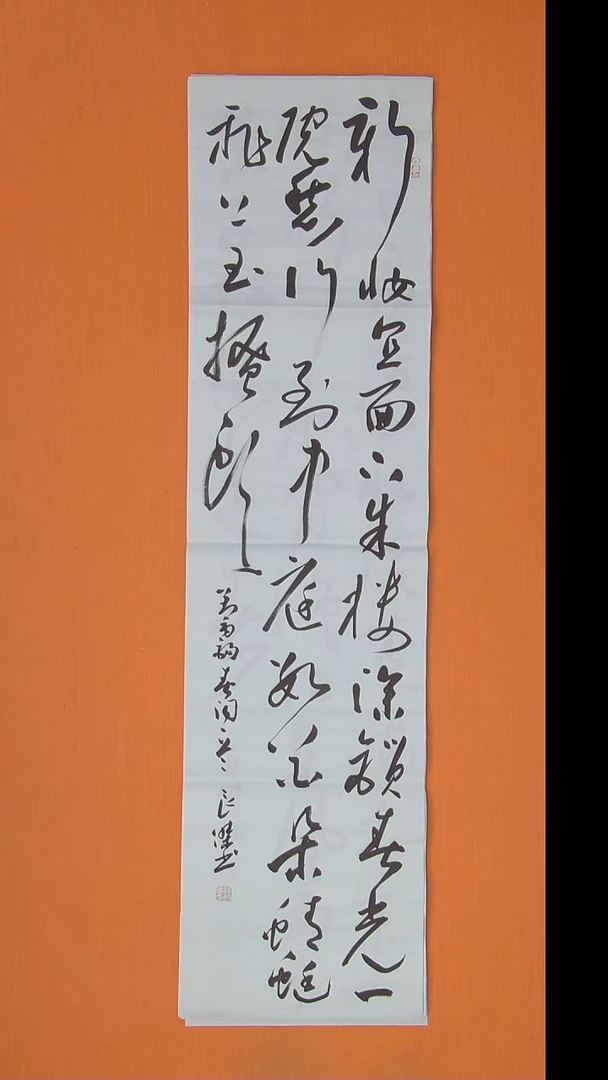 新妆宜面下朱楼深锁春光一
院愁行到中庭数花朵蜻蜓
飞上玉搔头
刘禹锡春词 书